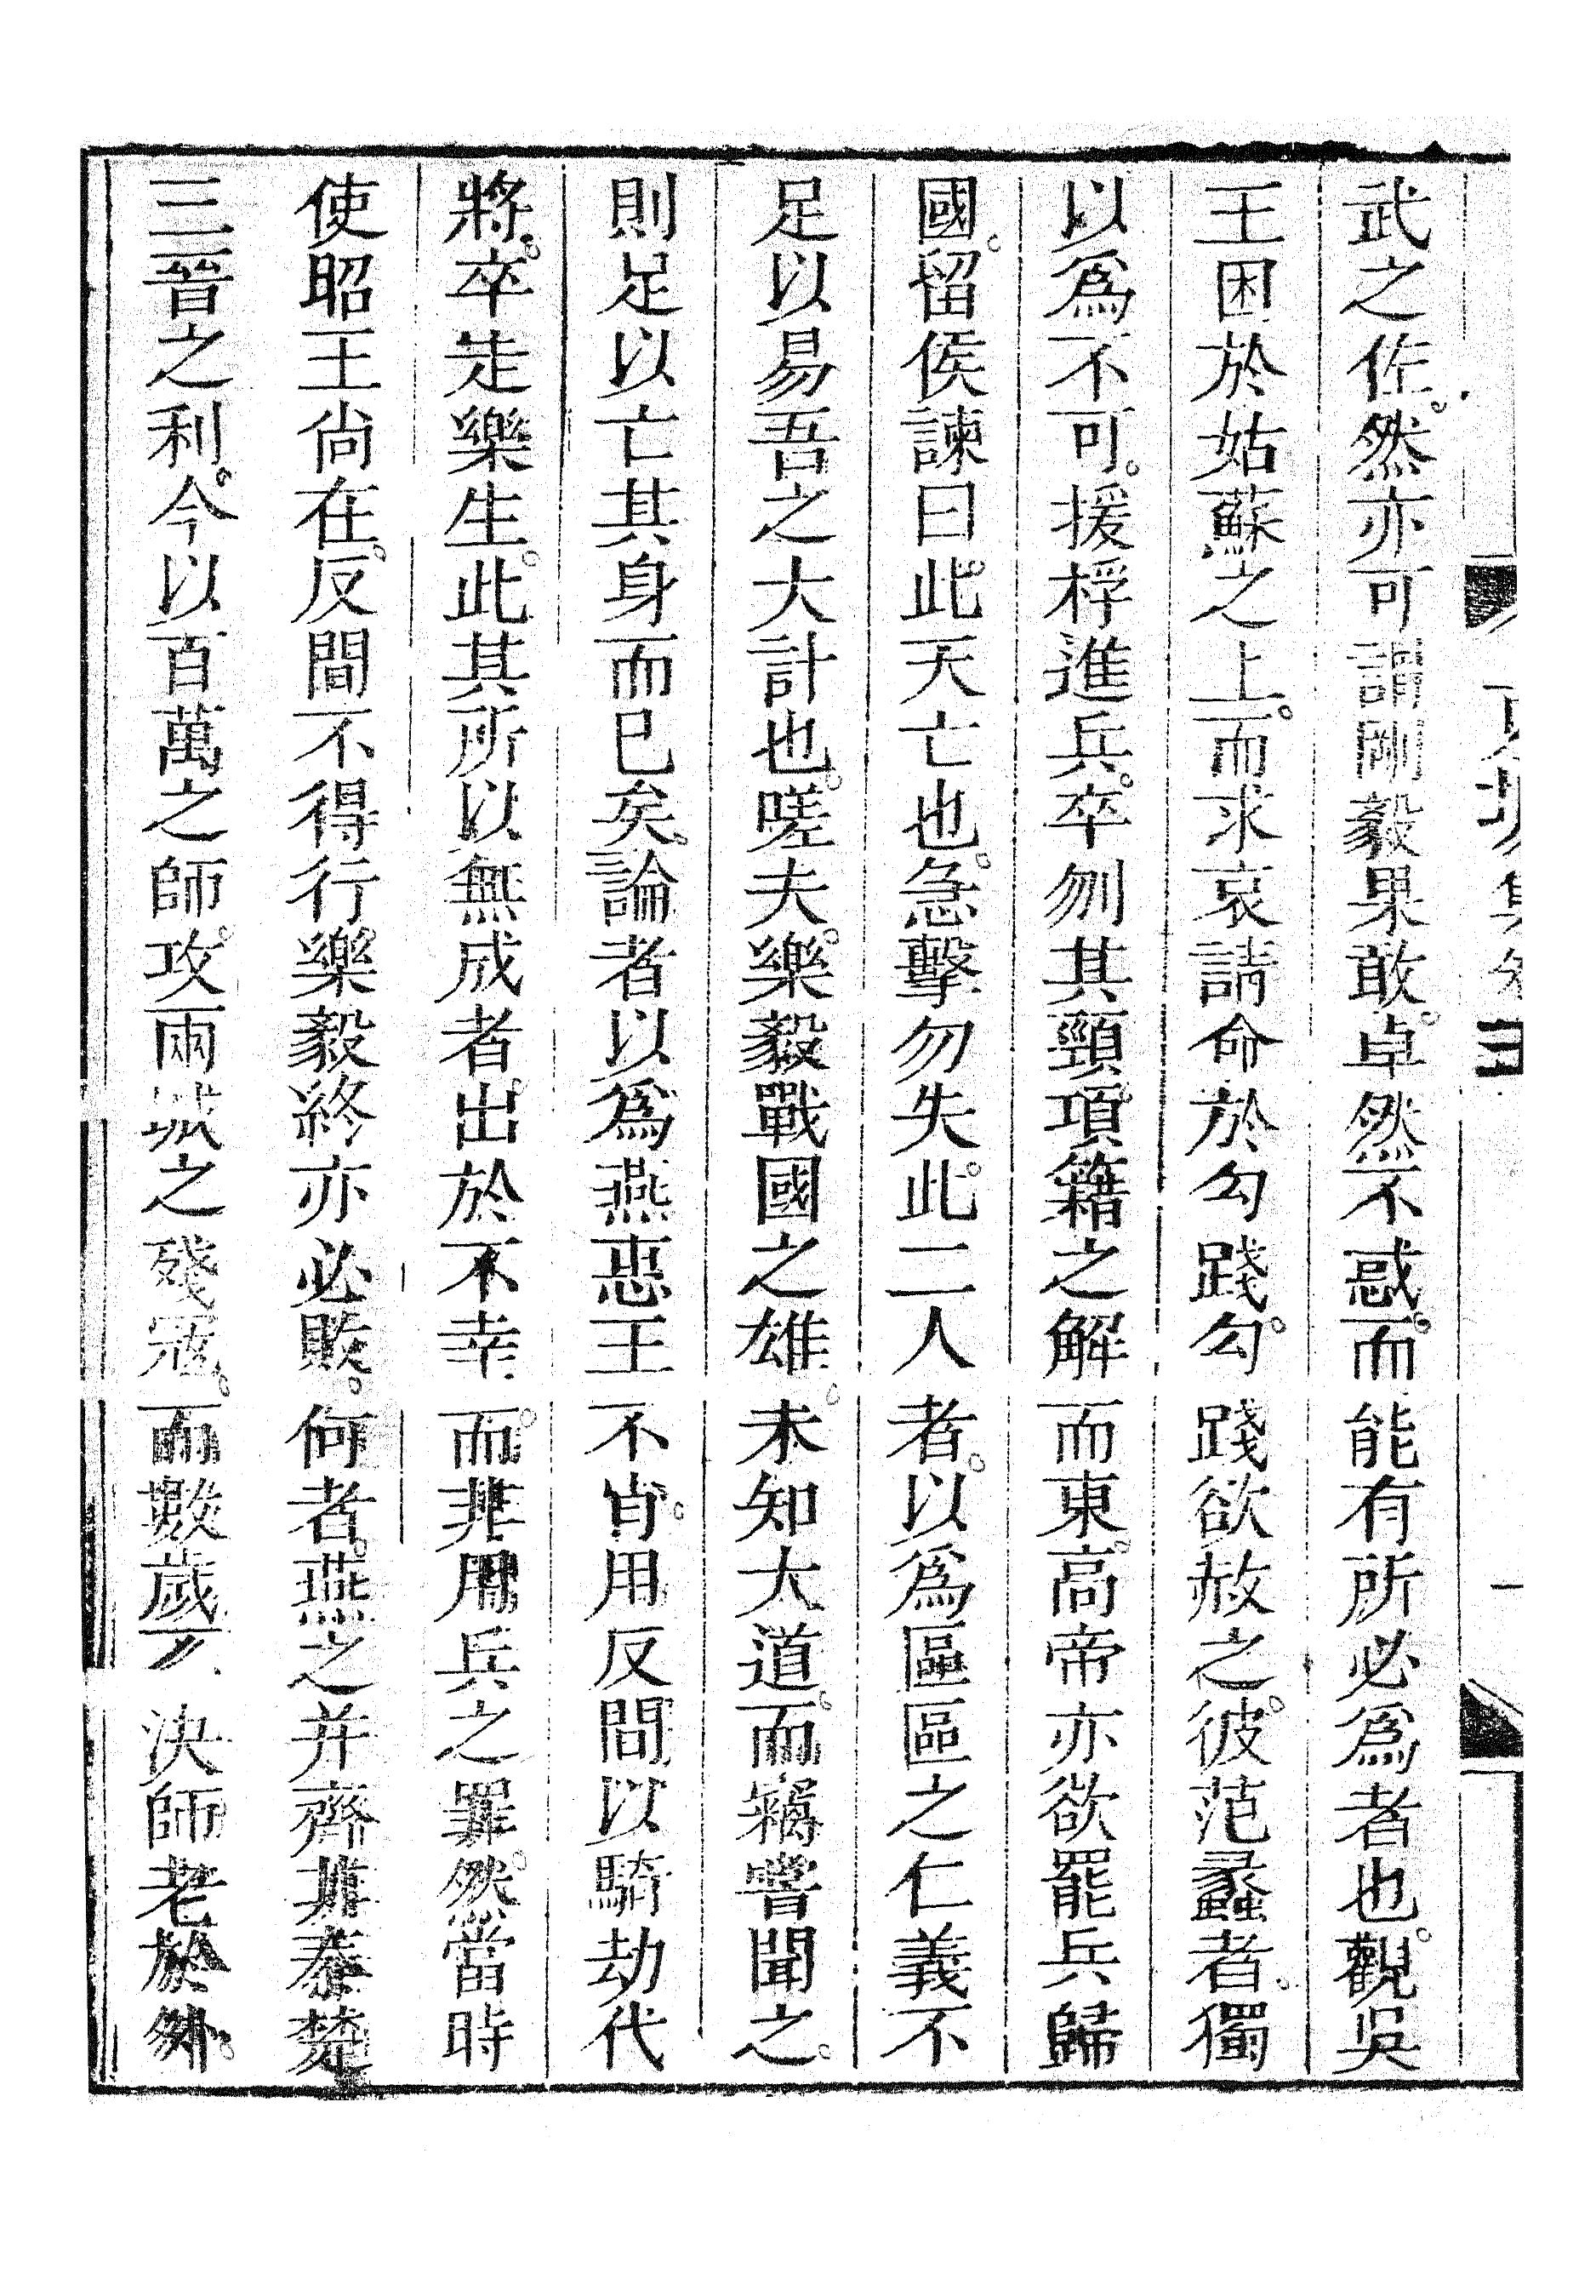 武之佐。然亦可謂剛毅果敢。卓然不惑。而能有所必爲者也。觀吳
王困於姑蘇之上。而求哀請命於勾踐。勾踐欲赦之。彼范蠡者。獨
以爲不可。援桴進兵。卒刎其頸。項籍之解而東。高帝亦欲罷兵歸
國。留侯諫曰。此天亡也。急擊勿失。此二人者。以爲區區之仁義不
足以易吾之大計也。嗟夫。樂毅戰國之雄。未知大道。而竊嘗聞之。
則足以亡其身而已矣。論者以爲燕惠王不肖。用反間以騎劫代
將。卒走樂生。此其所以無成者。出於不幸。而非用兵之罪。然當時
使昭王尙在。反間不得行。樂毅終亦必敗。何者。燕之并齊非秦楚
三晉之利。今以百萬之師。攻兩城之殘寇。而數歲不決師老於外。
集卷三